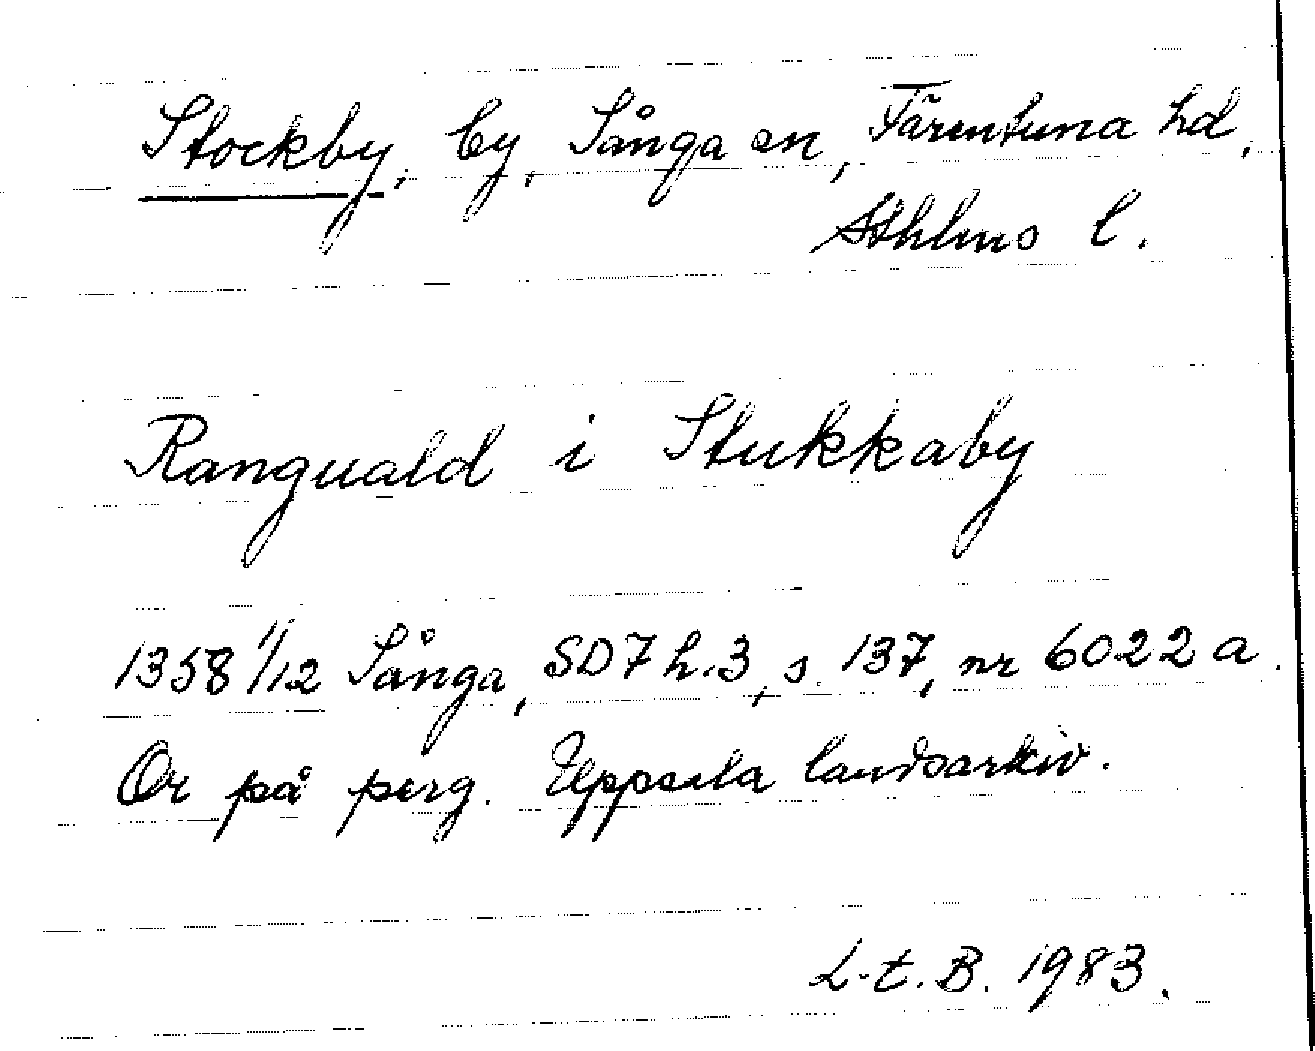 Stockby, by, Sånga sn, Färentuna hd,
Sthlms l.
Ranguald i Stukkaby
1358 11/12 Sånga, SD7 h.3, s. 137, nr 6022 a.
Or på perg. Uppsala landsarkiv.
L-t. B. 1983.